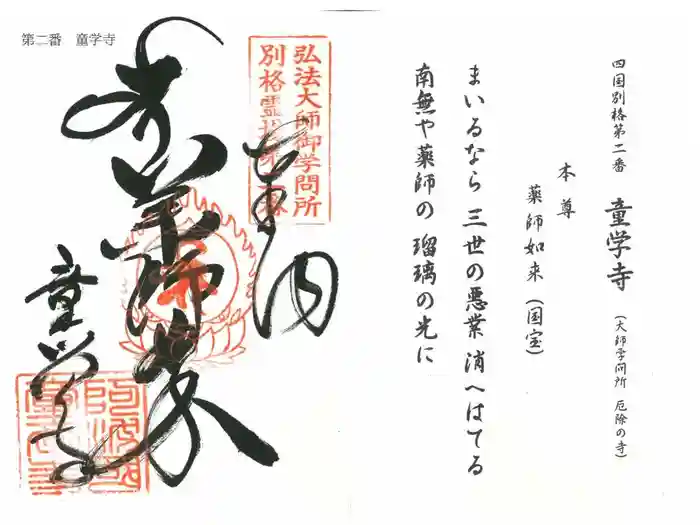 四国別格第二番 童学寺 (大師学問所 厄除の寺)
本尊
薬師如来 (国宝)
まいるなら 三世の悪業 消へはてる
南無や薬師の 瑠璃の光に
弘法大師御学問所
別格霊場第二番
奉納
薬師如来
童学寺
第二番 童学寺